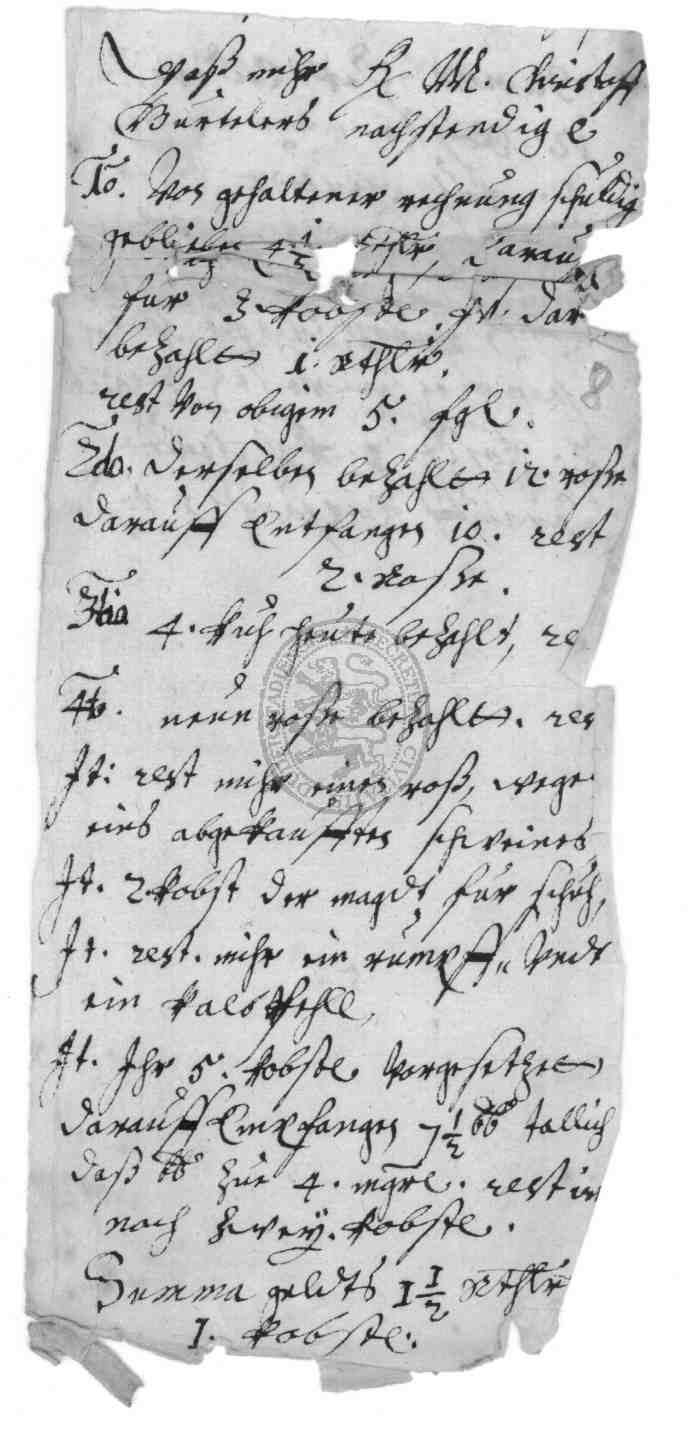 Waß mihr H. M. Christoff
Bürtelers nachstendig
1o. Von gehaltener rechnung schuldig
geblieben 4 1/2 Rthlr, darauf
für 3 kobstl. It. dar
bezahlt 1. Rthlr.
rest Von obigem 5. fgl.
2do. Derselben bezahlt 12. rosße
darauff Entfangen 10. rest
2. Rosße.
3tio 4. kuh heute bezahlt, re
4to. neun rosße bezahlt. res
It: rest mihr einen roß, wege
eins abgekaufften schweines
It. 2 kobst der magdt für schuh,
It. rest. mihr ein rumpff, Undt
ein kalbfehll,
It. Ihr 5. kobstl Vorgesetzet
darauff Empfangen 7 1/2 lb tallich
daß lb zue 4. mgrl. rest
nach zwey. kobstl.
Summa geldts 1 1/2 Rthlr
1. kobstl.
8